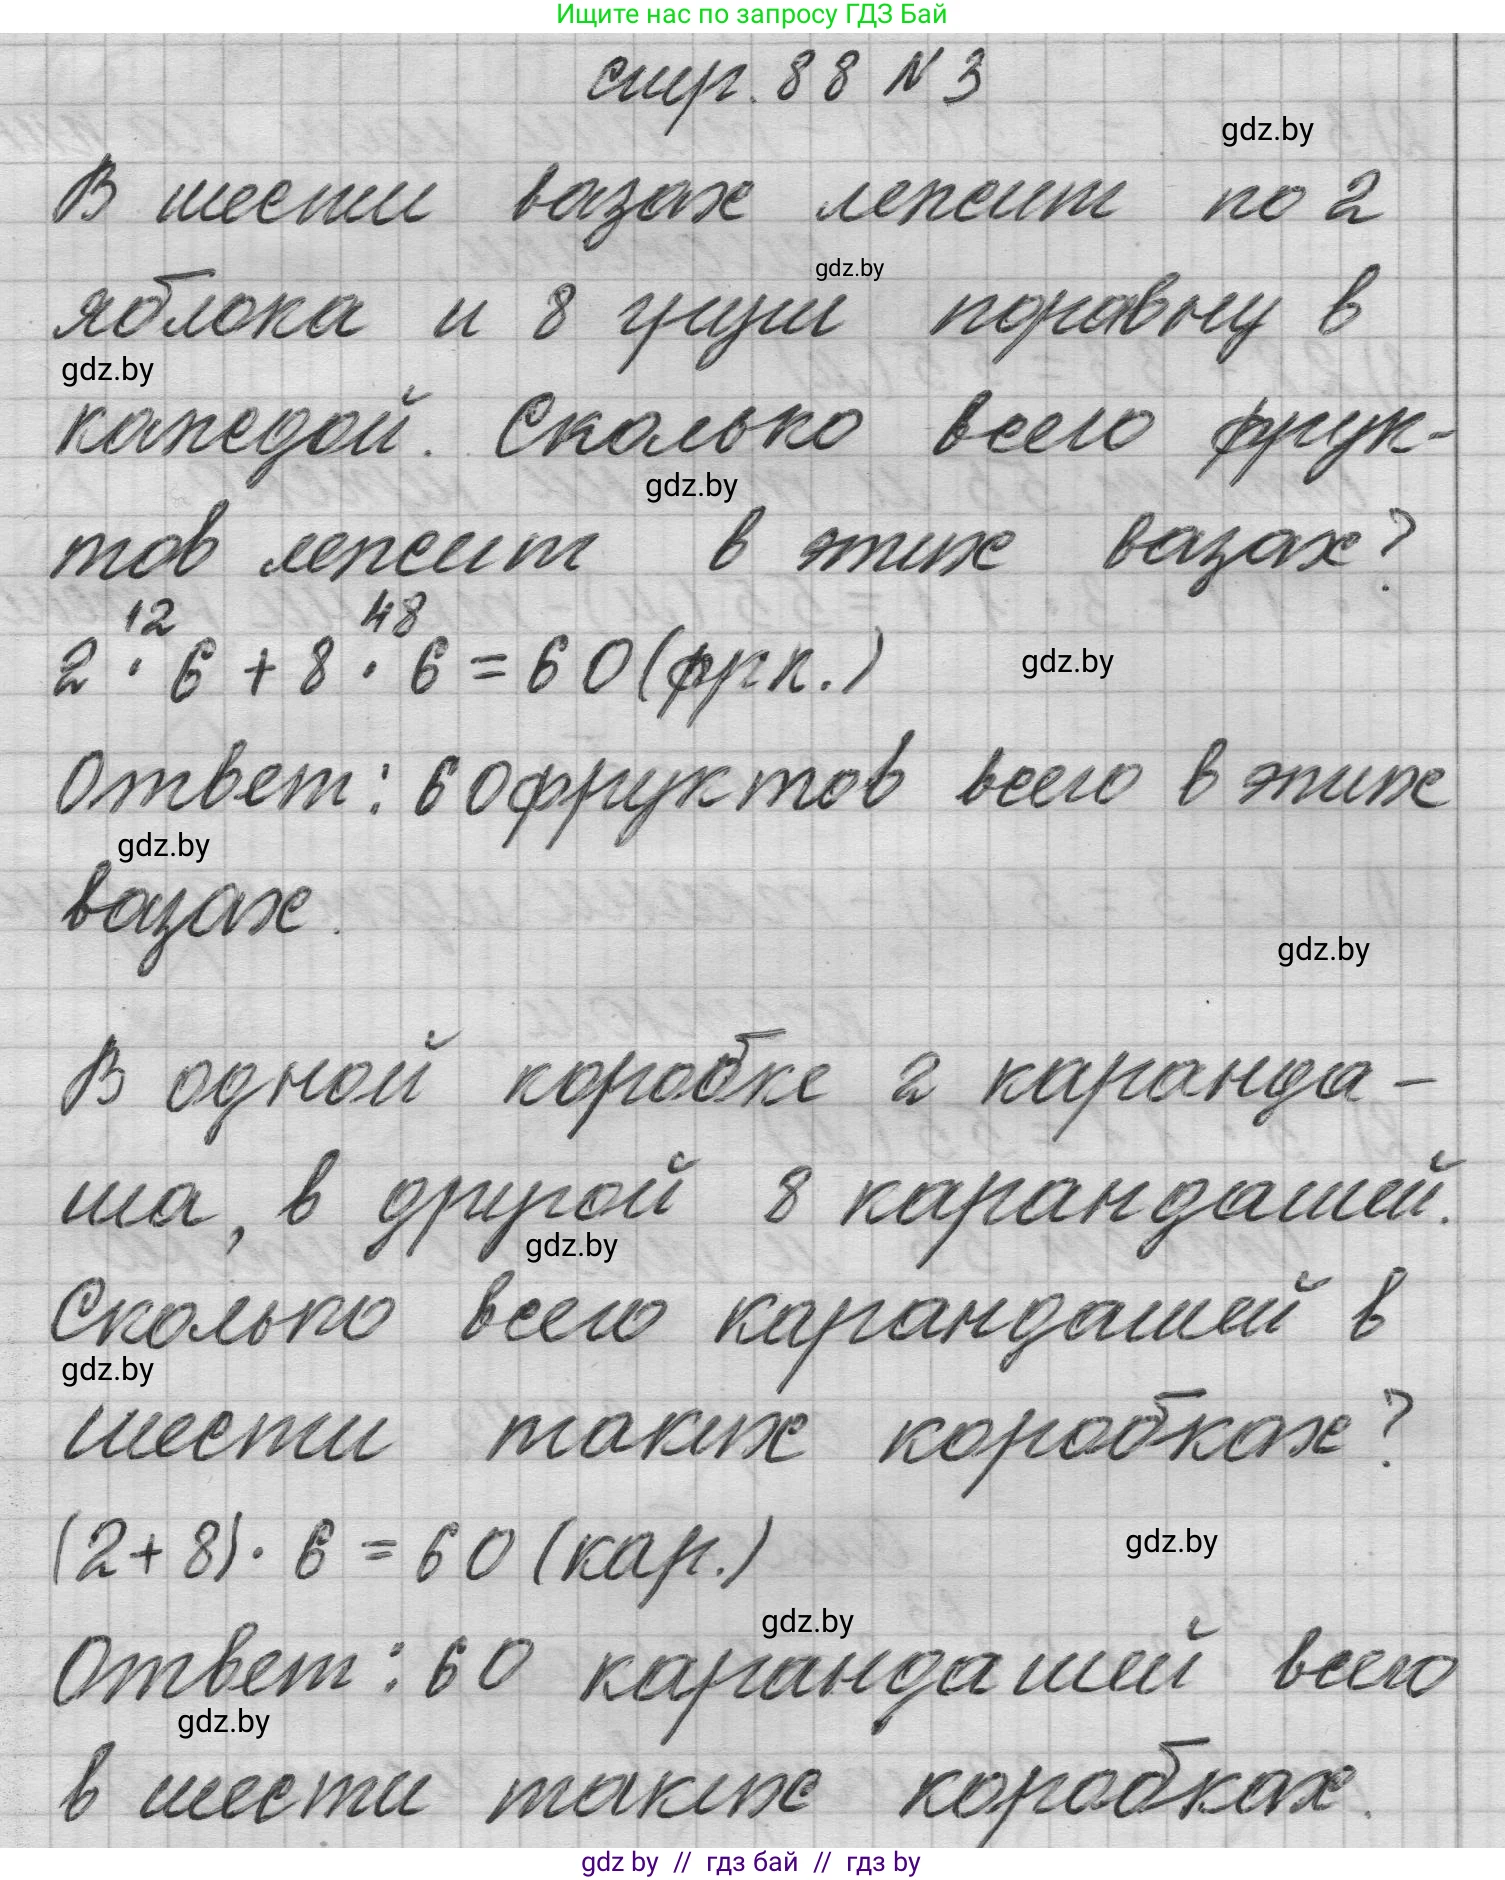 Ищите нас по запросу ГДЗ Бай
стр. 88 N 3
gdz.by
В шести вазах лежит по 2
gdz.by
яблока и 8 груш поравну в
gdz.by
каждой. Сколько всего фрук-
gdz.by
тов лежит в этих вазах?
12 48
2 · 6 + 8 · 6 = 60 (фрк.)
gdz.by
Ответ: 60 фруктов всего в этих
gdz.by
вазах.
gdz.by
В одной коробке 2 каранда-
ша, в другой 8 карандашей.
gdz.by
Сколько всего карандашей в
gdz.by
шести таких коробках?
(2+8) · 6 = 60 (кар.)
gdz.by
gdz.by
Ответ: 60 карандашей всего
gdz.by
в шести таких коробках.
gdz by // гдз бай // гдз by